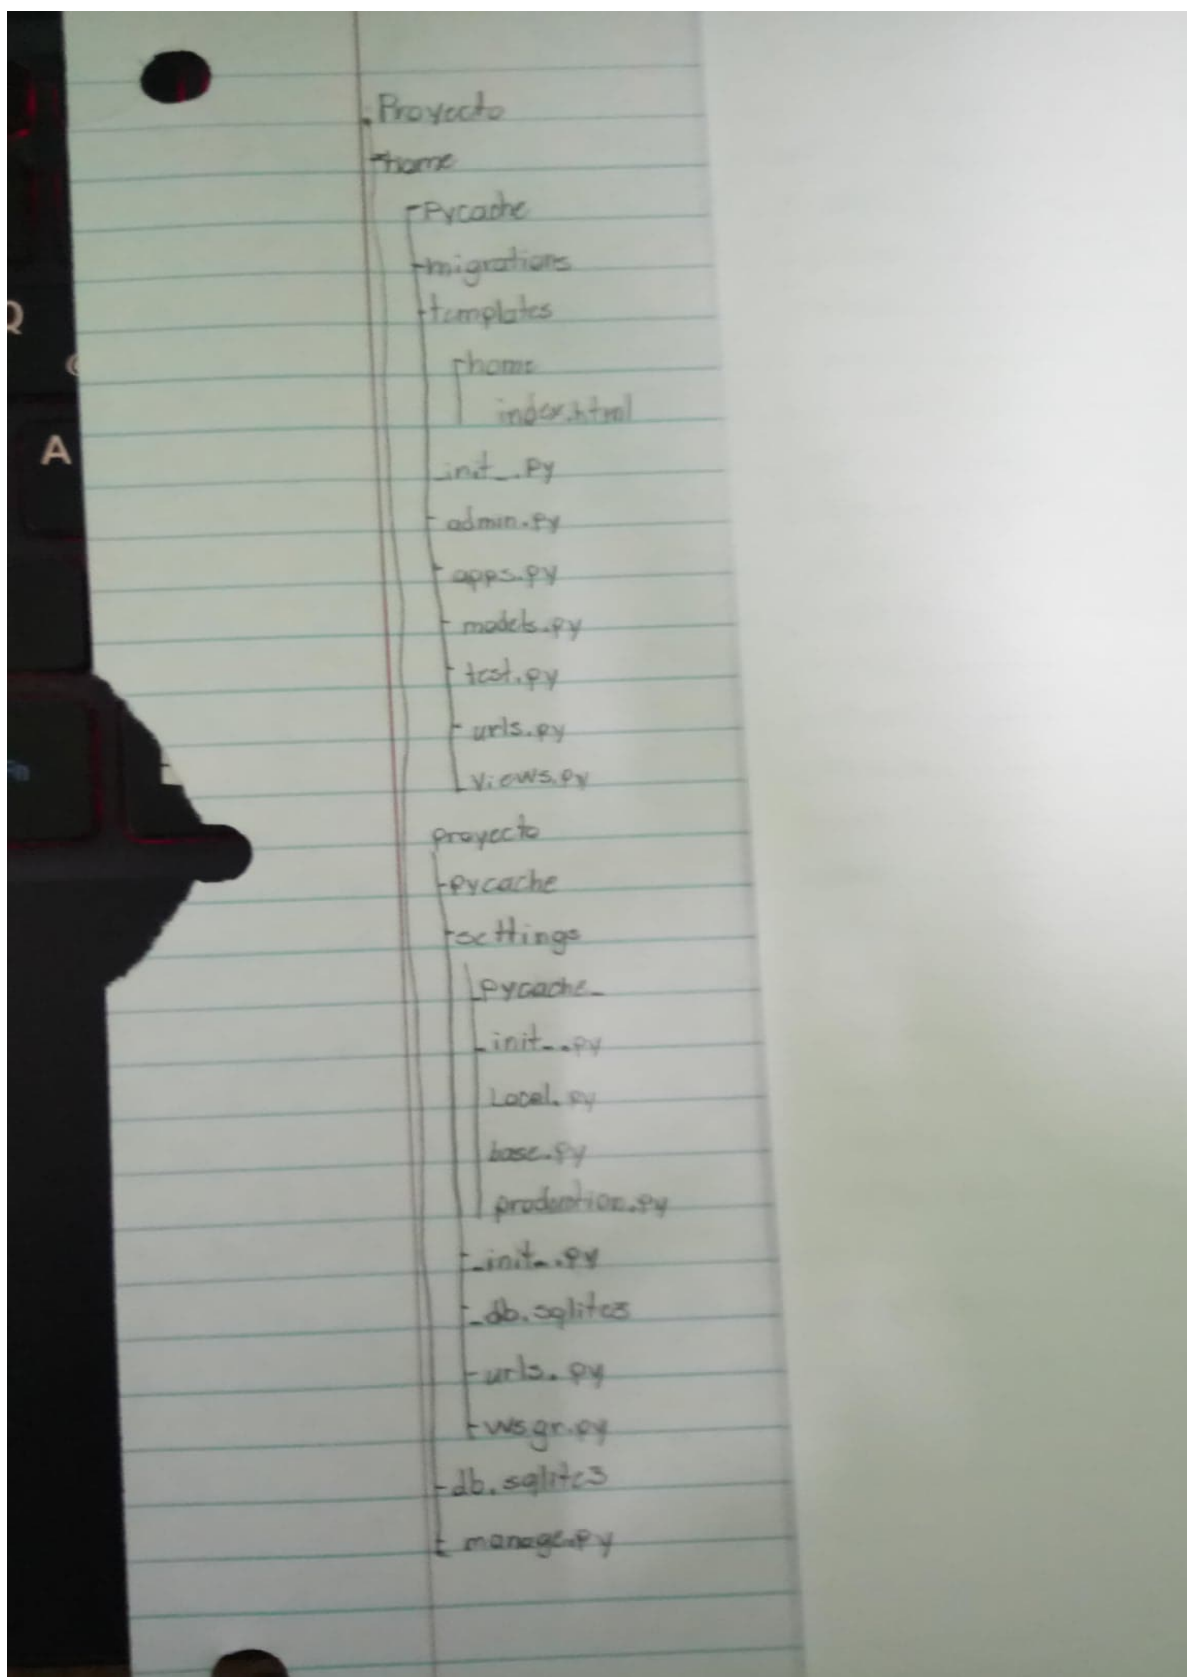 Proyecto
home
Pycache
migrations
templates
home
index.html
_init_.Py
admin.Py
apps.py
models.py
test.py
urls.py
views.py
proyecto
pycache
settings
pycache_
_init_.py
Local.py
base.py
production.py
_init_.py
_db.sqlite3
urls.py
wsgr.py
db.sqlite3
manage.py
Q
A
Fn